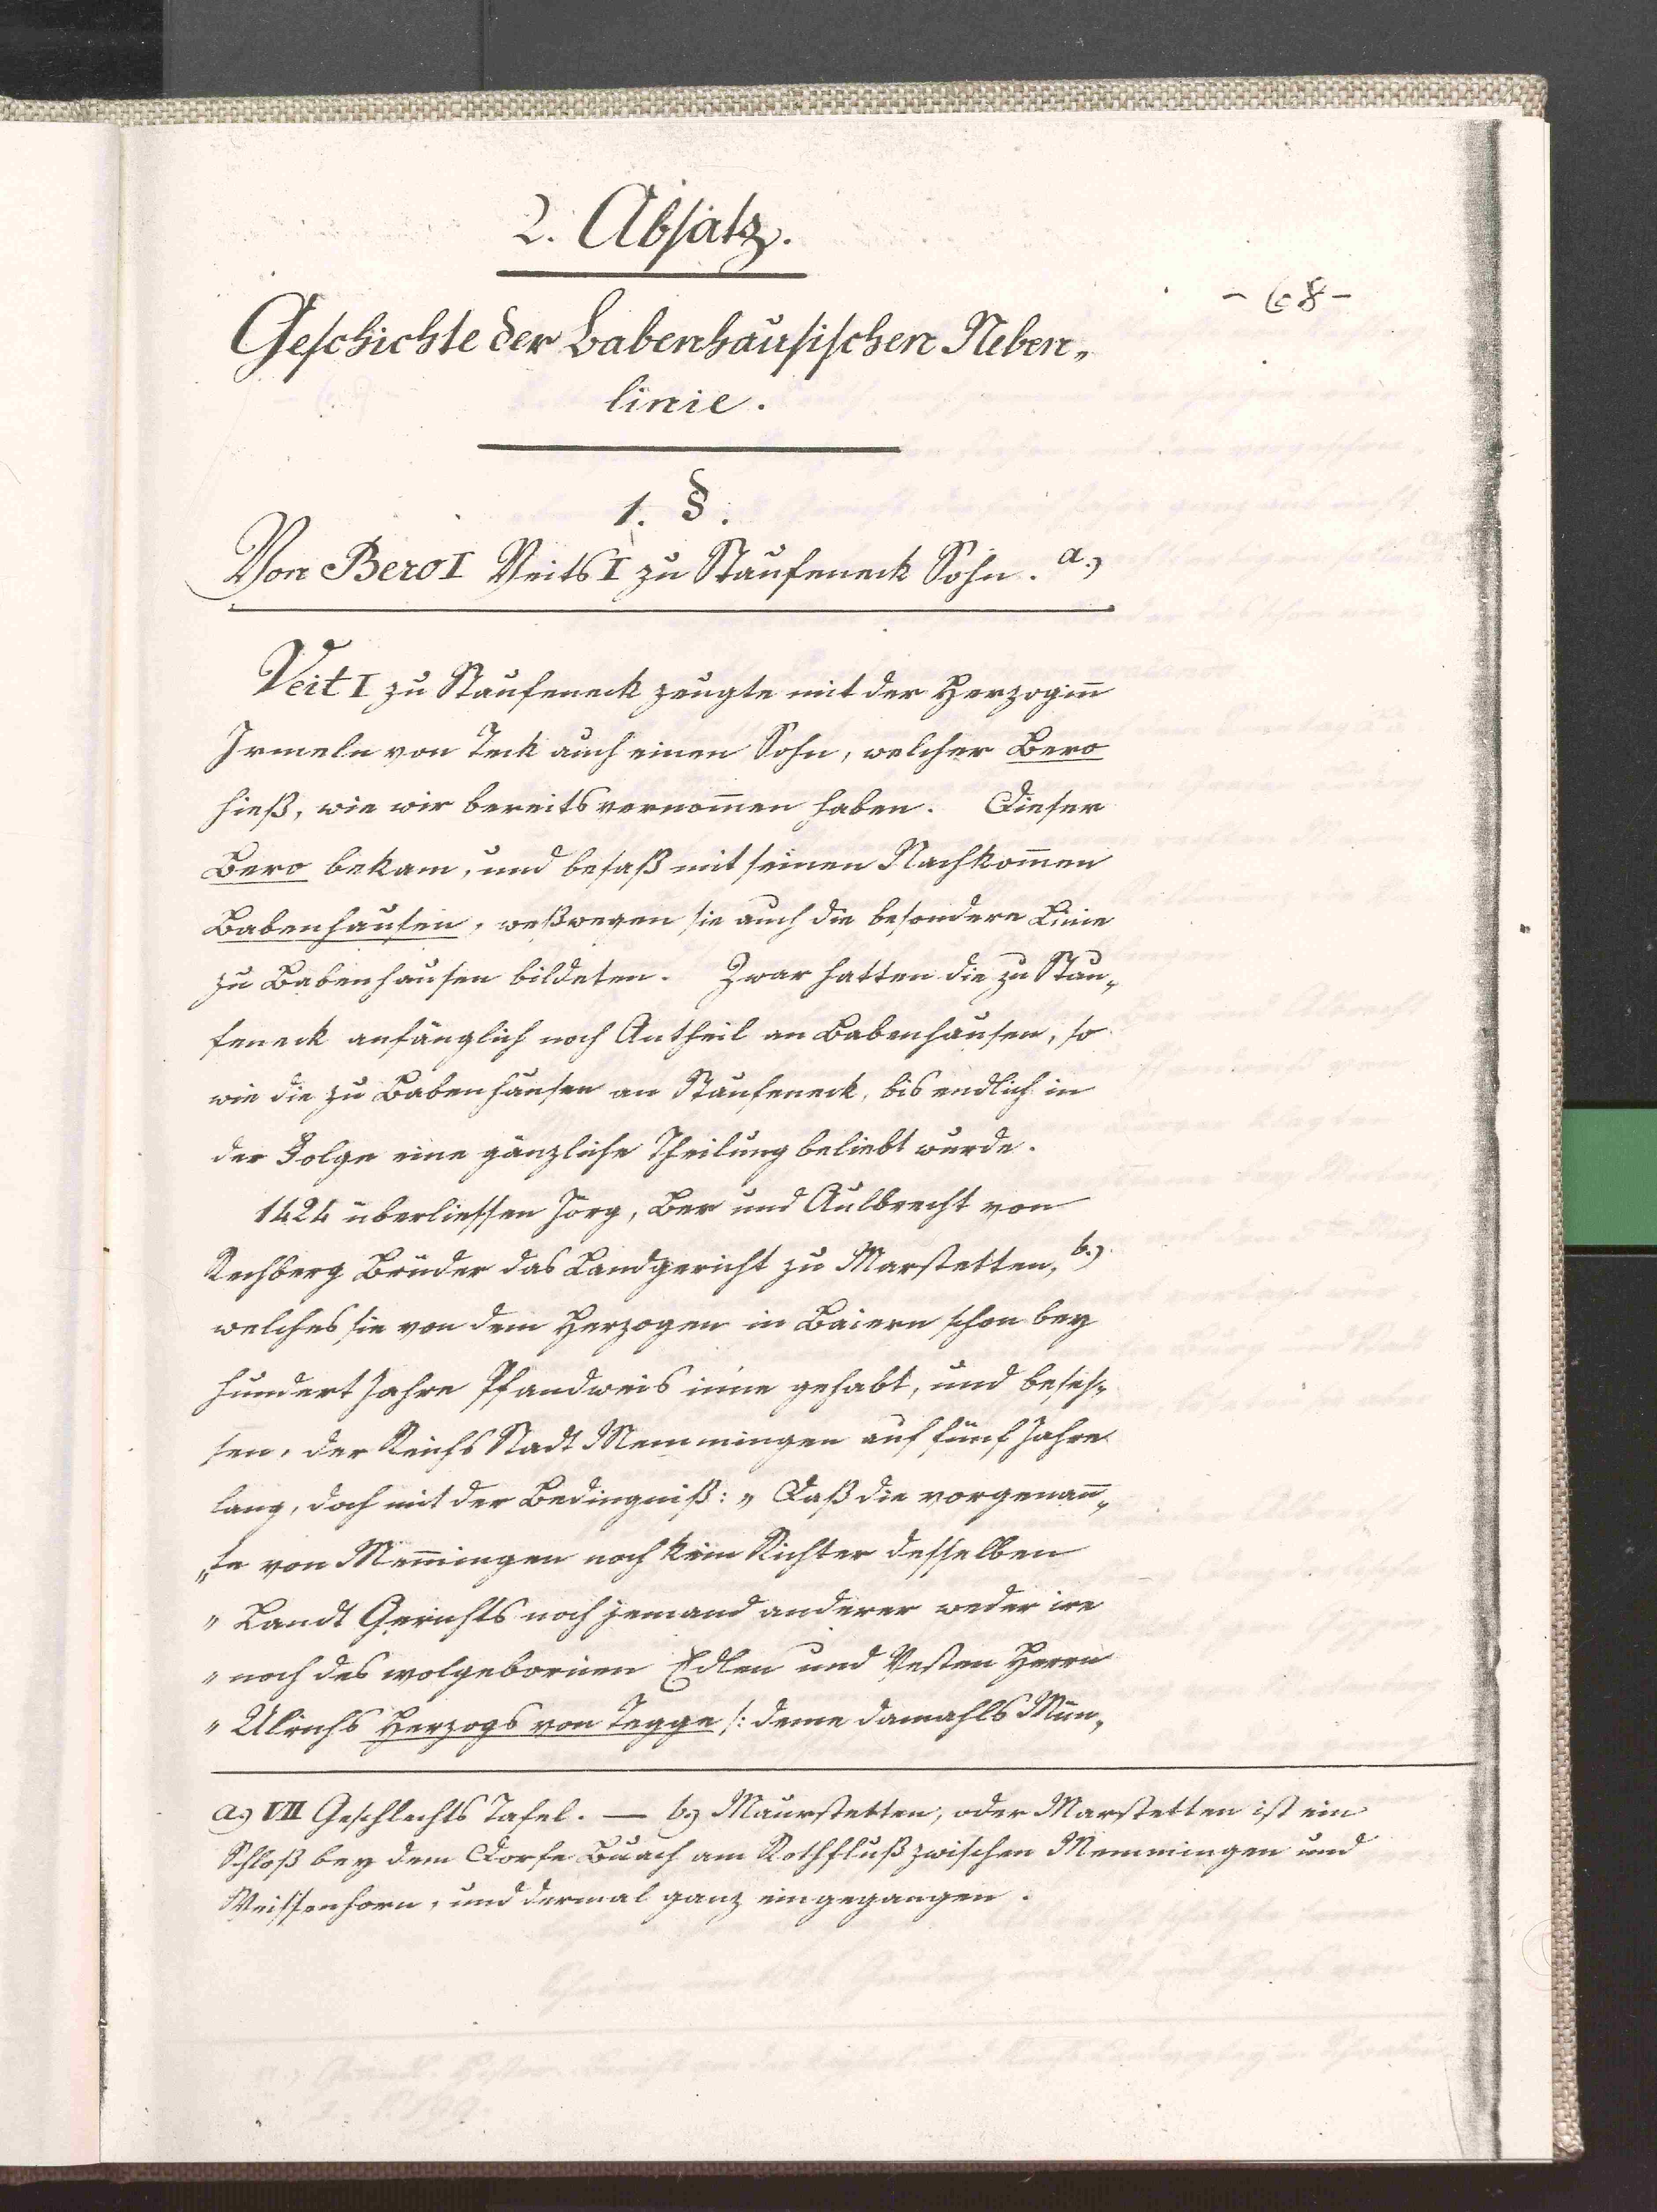 2. Absatz.
- 68 -
Geschichte der Babenhausischen Neben„
linie.
1. §.
Von Bero I Veits I zu Staufeneck Sohn. a.)
Veit I zu Staufeneck zeugte mit der Herzoginn
Irmeln von Teck auch einen Sohn, welcher Bero
hieß, wie wir bereits vernom̄en haben. Dieser
Bero bekam, und besaß mit seinen Nachkom̄en
Babenhausen, weßwegen sie auch die besondere Linie
zu Babenhausen bildeten. Zwar hatten die zu Stau„
feneck anfänglich noch Antheil an Babenhausen, so
wie die zu Babenhausen an Staufeneck, bis endlich in
der Folge eine gänzliche Theilung beliebt wurde.
1424 überliessen Jörg, Ber und Aulbrecht von
Rechberg Brüder das Landgericht zu Marstetten, b.)
welches sie von dem Herzogen in Baiern schon bey
hundert Jahre Pfandweis inne gehabt, und beses„
sen, der Reichs Stadt Memmingen auf fünf Jahre
lang, doch mit der Bedingniß: „Daß die vorgenan̄„
„te von Mem̄ingen noch kein Richter desselben
„Landt Gerichts noch jemand anderer weder ire
„noch des wolgebornen Edlen und Vesten Herrn
„Ulrichs Herzogs von Tegge /: deme damahls Min„
a.) VII Geschlechts Tafel. — b.) Maurstetten, oder Marstetten ist ein
Schloß bey dem Dorfe Buach am Rothfluß zwischen Memmingen und
Weissenhorn, und dermal ganz eingegangen.